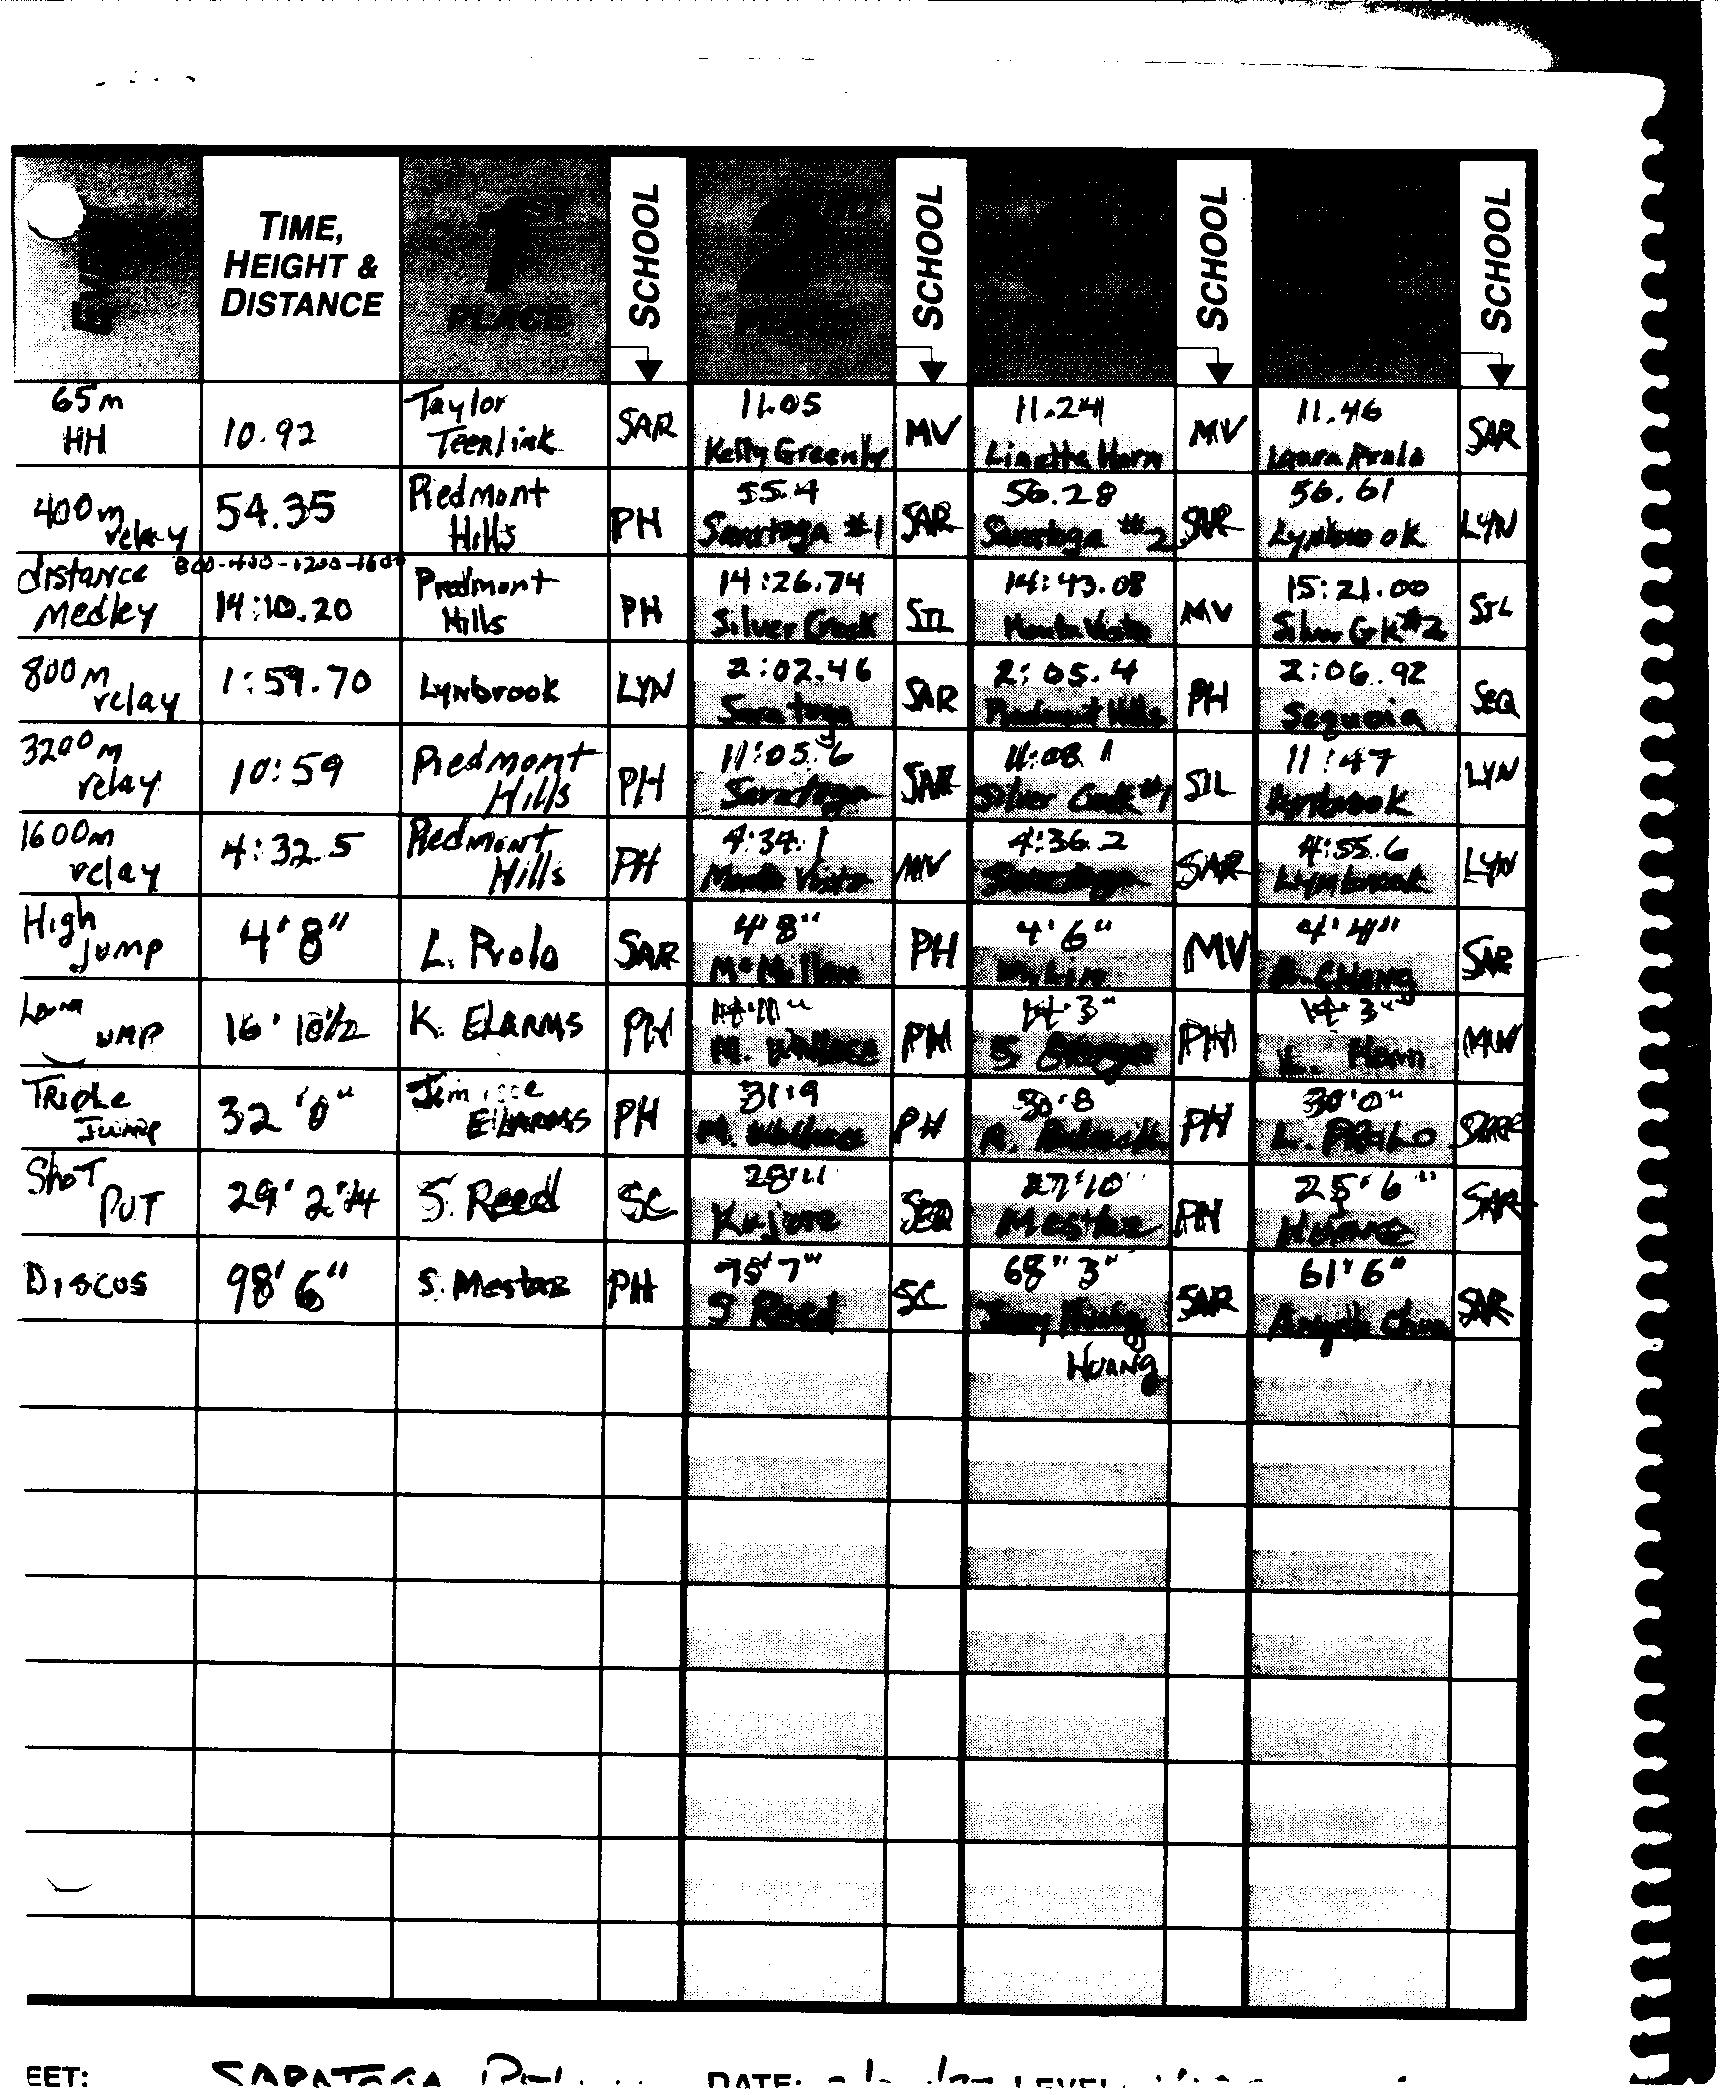 TIME, HEIGHT & DISTANCE 1ST PLACE SCHOOL 2ND PLACE SCHOOL SCHOOL SCHOOL
65m HH 10.92 Taylor Teerlink SAR 11.05 Kelly Greenly MV 11.24 Linette Horn MV 11.46 SAR
400m relay 54.35 Piedmont Hills PH 55.4 Saratoga #1 SAR 56.28 Saratoga #2 SAR 56.61 Lynbrook LYN
distance Medley 800-400-1200-1600 14:10.20 Piedmont Hills PH 14:26.74 Silver Creek SIL 14:43.08 Monta Vista MV 15:21.00 Silver CK #2 SIL
800m relay 1:59.70 Lynbrook LYN 2:02.46 Saratoga SAR 2:05.4 Piedmont Hills PH 2:06.92 Sequoia SEQ
3200m relay 10:59 Piedmont Hills PH 11:05.6 Saratoga SAR 11:08.1 Silver Creek #1 SIL 11:47 Lynbrook LYN
1600m relay 4:32.5 Piedmont Hills PH 4:34.1 Monta Vista MV 4:36.2 Saratoga SAR 4:55.6 Lynbrook LYN
High Jump 4'8" L. Prolo SAR 4'8" McMillan PH 4'6" MV 4'4" Chang SAR
Long UMP 16' 10½ K. ELARMS PH M. Wallace PH 3" S. PH 3" L. Horn MV
TRIPLE Jump 32'0" ELARMS PH 31'9 M. Wallace PH 30'8 R. PH 30'0" L. PROLO SAR
SHOT PUT 29' 2"¼ S. Reed SC 28'11 Kujore SEQ 27'10" Mestaz PH 25'6" HUANG SAR
Discos 98'6" S. Mestaz PH 75'7" S Reed SC 68" 3" HUANG SAR 61'6" Angela SAR
EET: SARATOGA DATE: LEVEL: